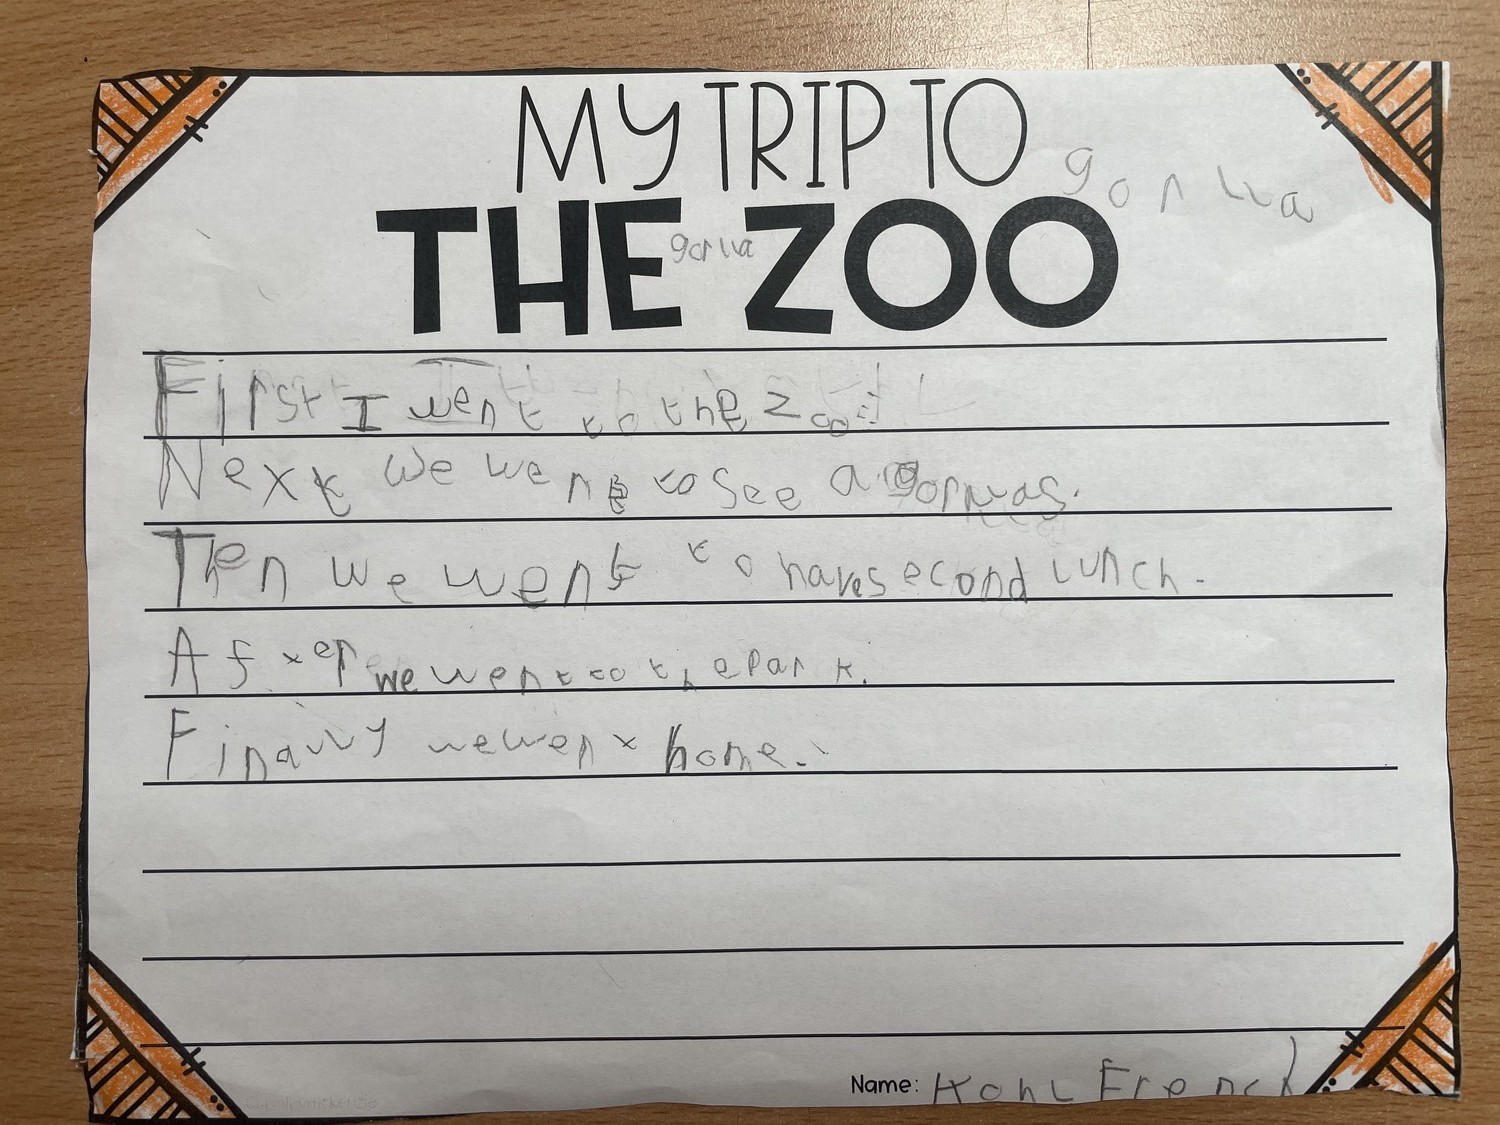 MY TRIP TO
gorilla
THE ZOO
gorlla
First I went to the Zoo.
Next we went to see a gorillas.
Then we went to have second lunch.
After we went to the park.
Finally we went home.
Name: Kohl French